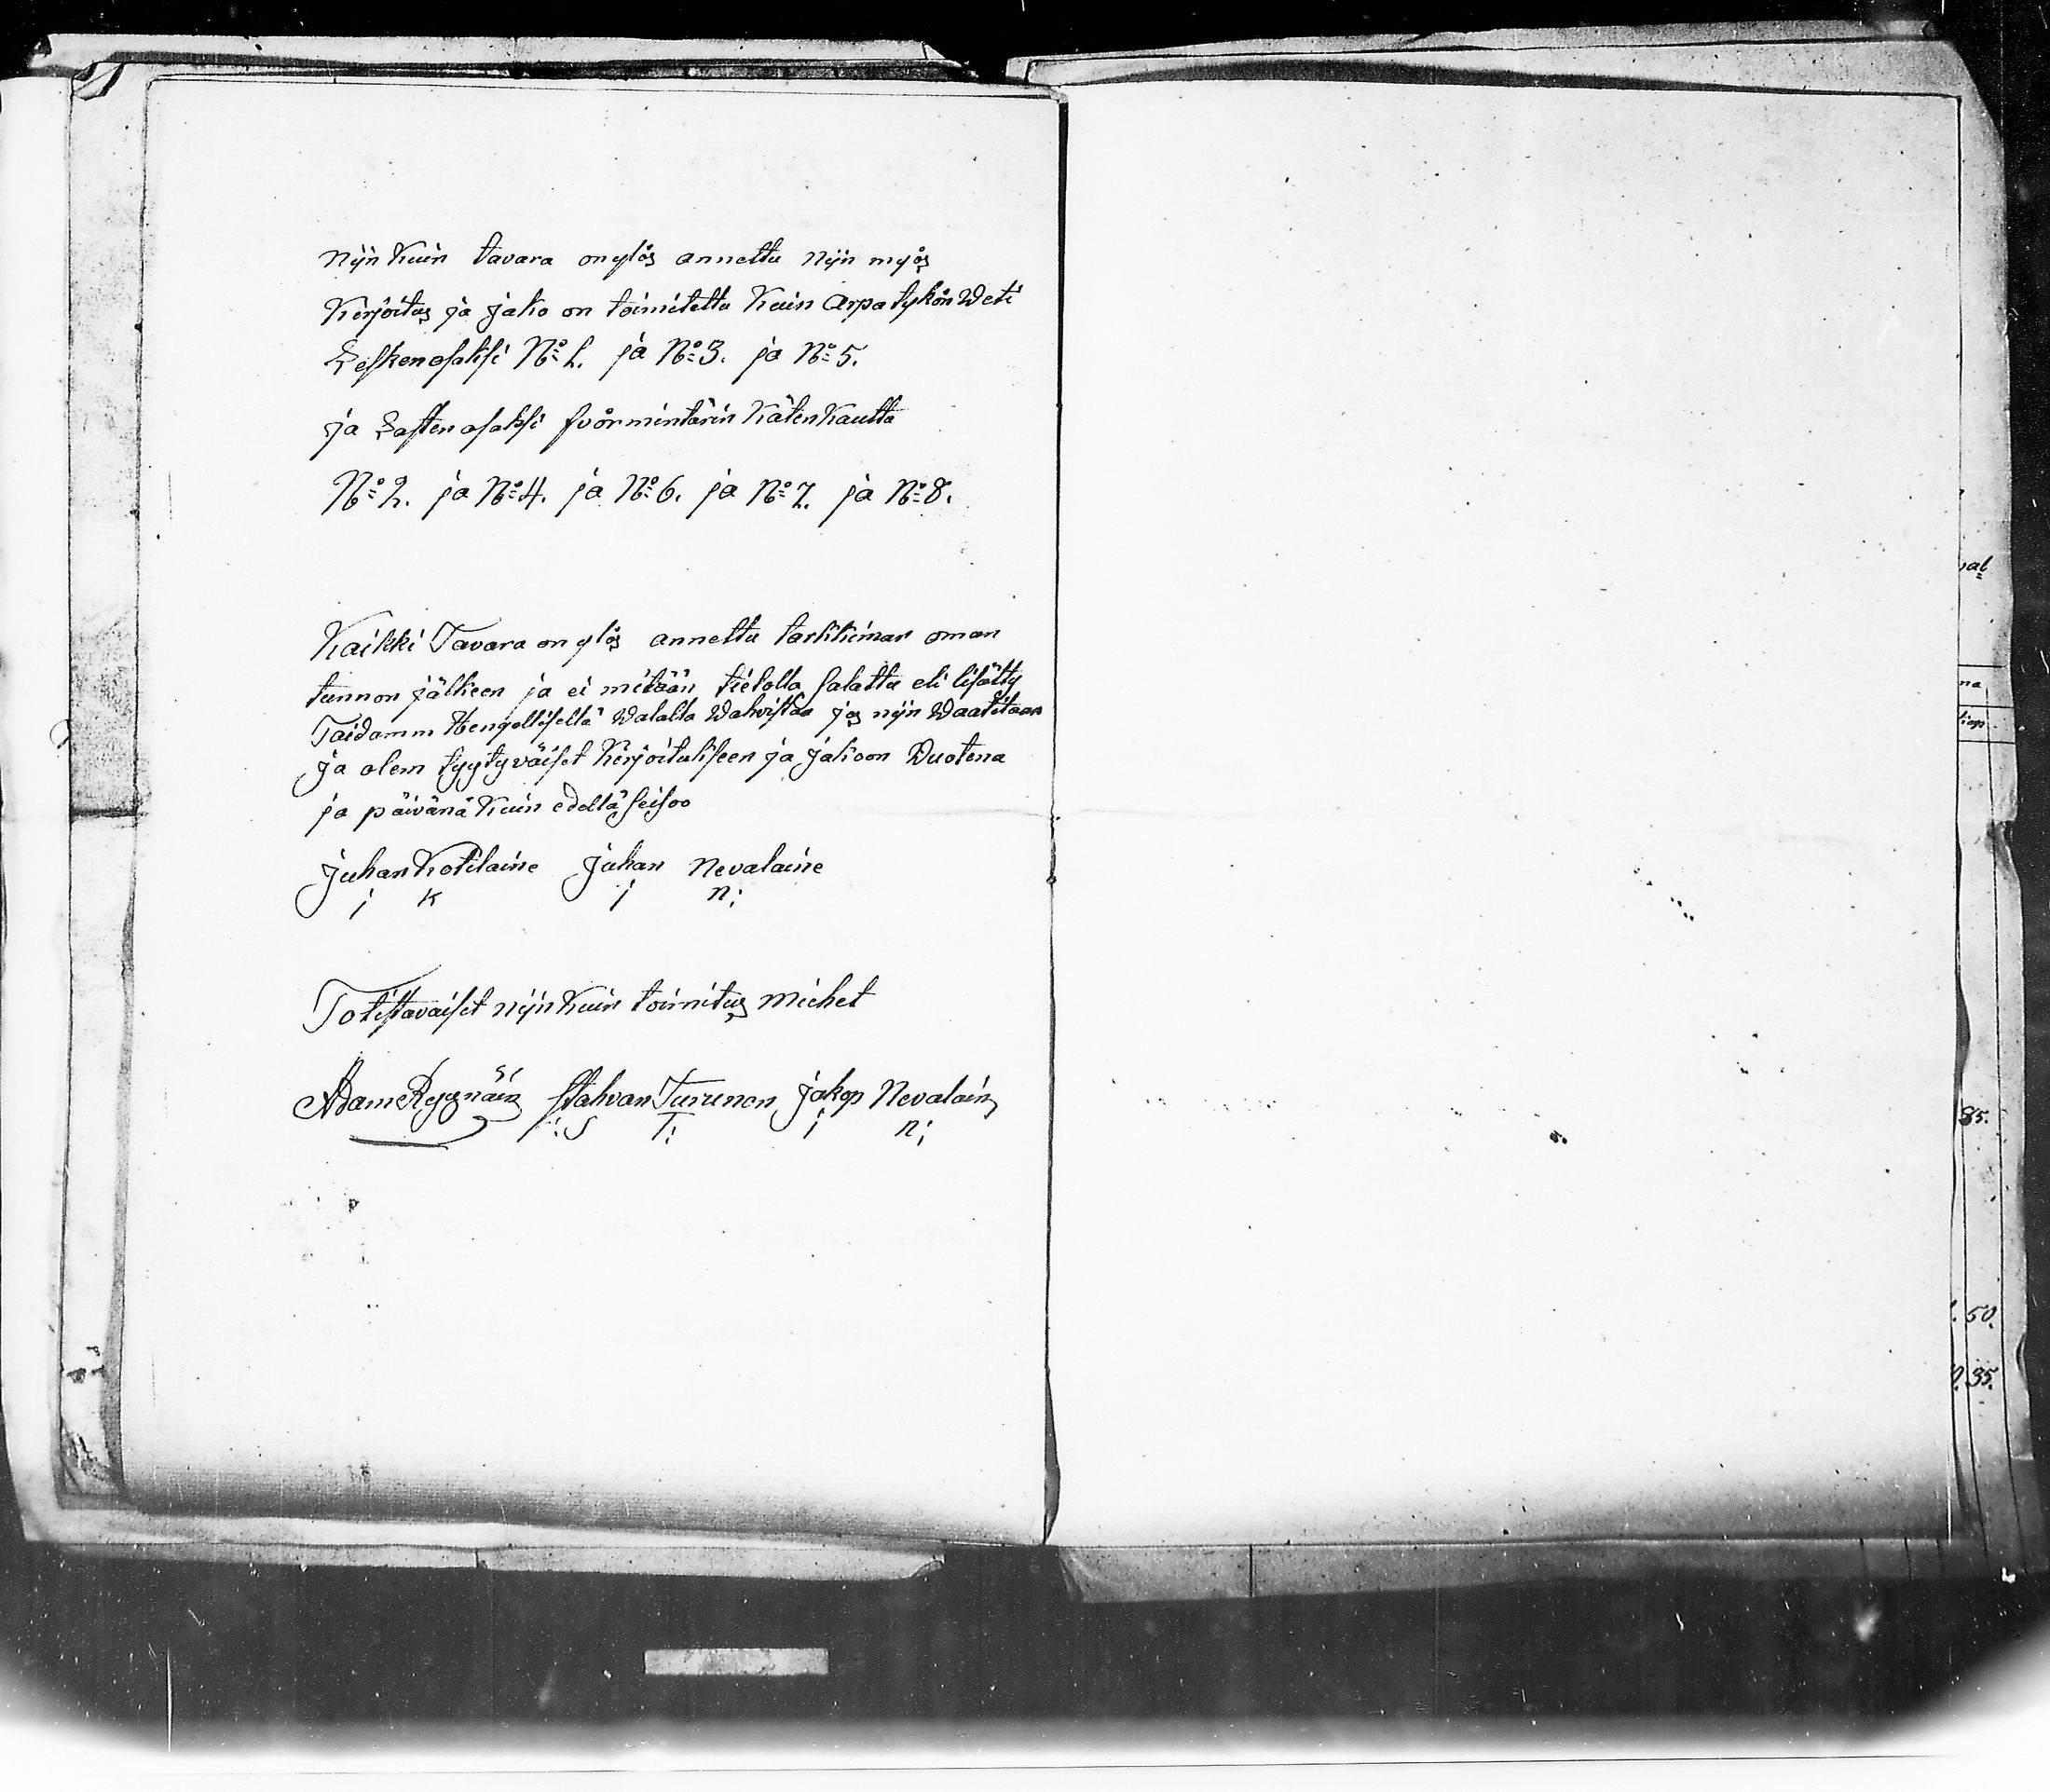 nijn kuin tavara on ylös annettu nijn myös
Kirjoitus ja jako on toimitettu kuin arpa tykön weti
Lesken osaksi No 1. ja No 3. ja No 5.
ja Lasten osaksi fvörmintärin käten kautta
No 2. ja No 4. ja No 6. ja No 7. ja No 8.
Kaikki Tavara on ylös annettu tarkkiman oman
tunnon jälkeen ja ei mitään tietolla salattu eli lisätty
Taidamm Hengellisellä walalla wahvistaa jos nijn waatitaan
ja olem tyytyväiset kirjoitukseen ja jakoon Vuotena
ja päivänä kuin edellä seisoo
Juhan Kotilaine Juhan Nevalaine
j K j n;
Totistavaiset nijn kuin toimitus miehet
Adam Ryynäin Stahvan Turunen Jakop Nevalain
S T: j n;
val
na
85.
50.
35.